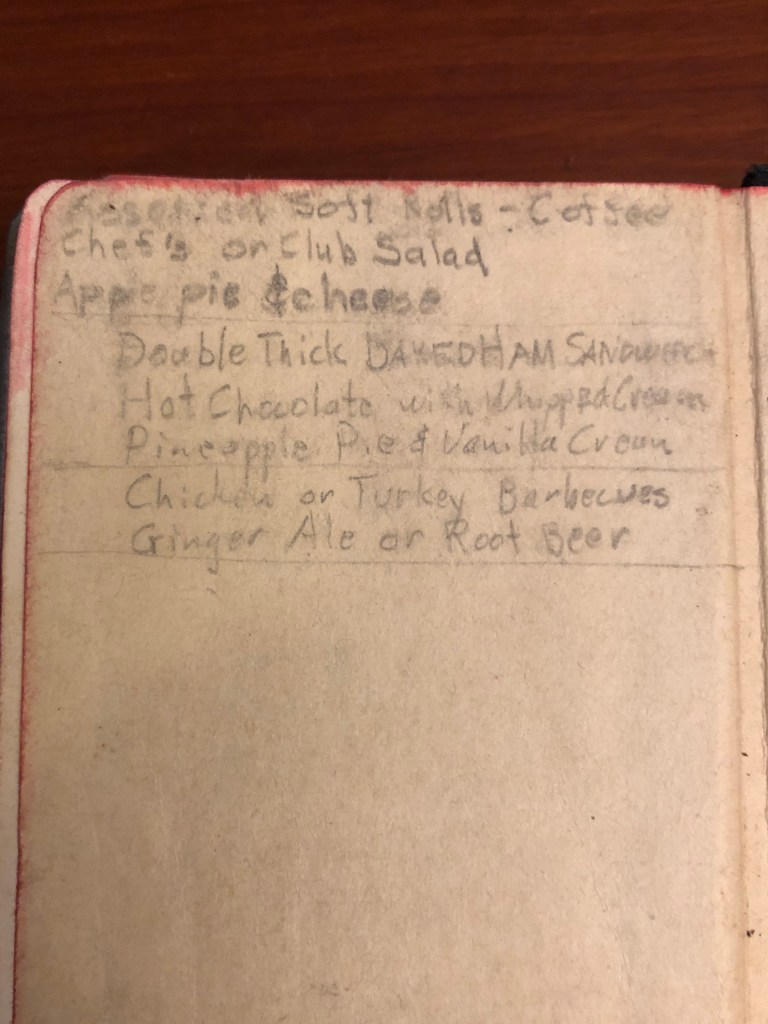 Assorted Soft Rolls - Coffee
Chef's or Club Salad
Apple pie & cheese
Double Thick BAKED HAM SANDWICH
Hot Chocolate with Whipped Cream
Pineapple Pie & Vanilla Cream
Chicken or Turkey Barbecues
Ginger Ale or Root Beer